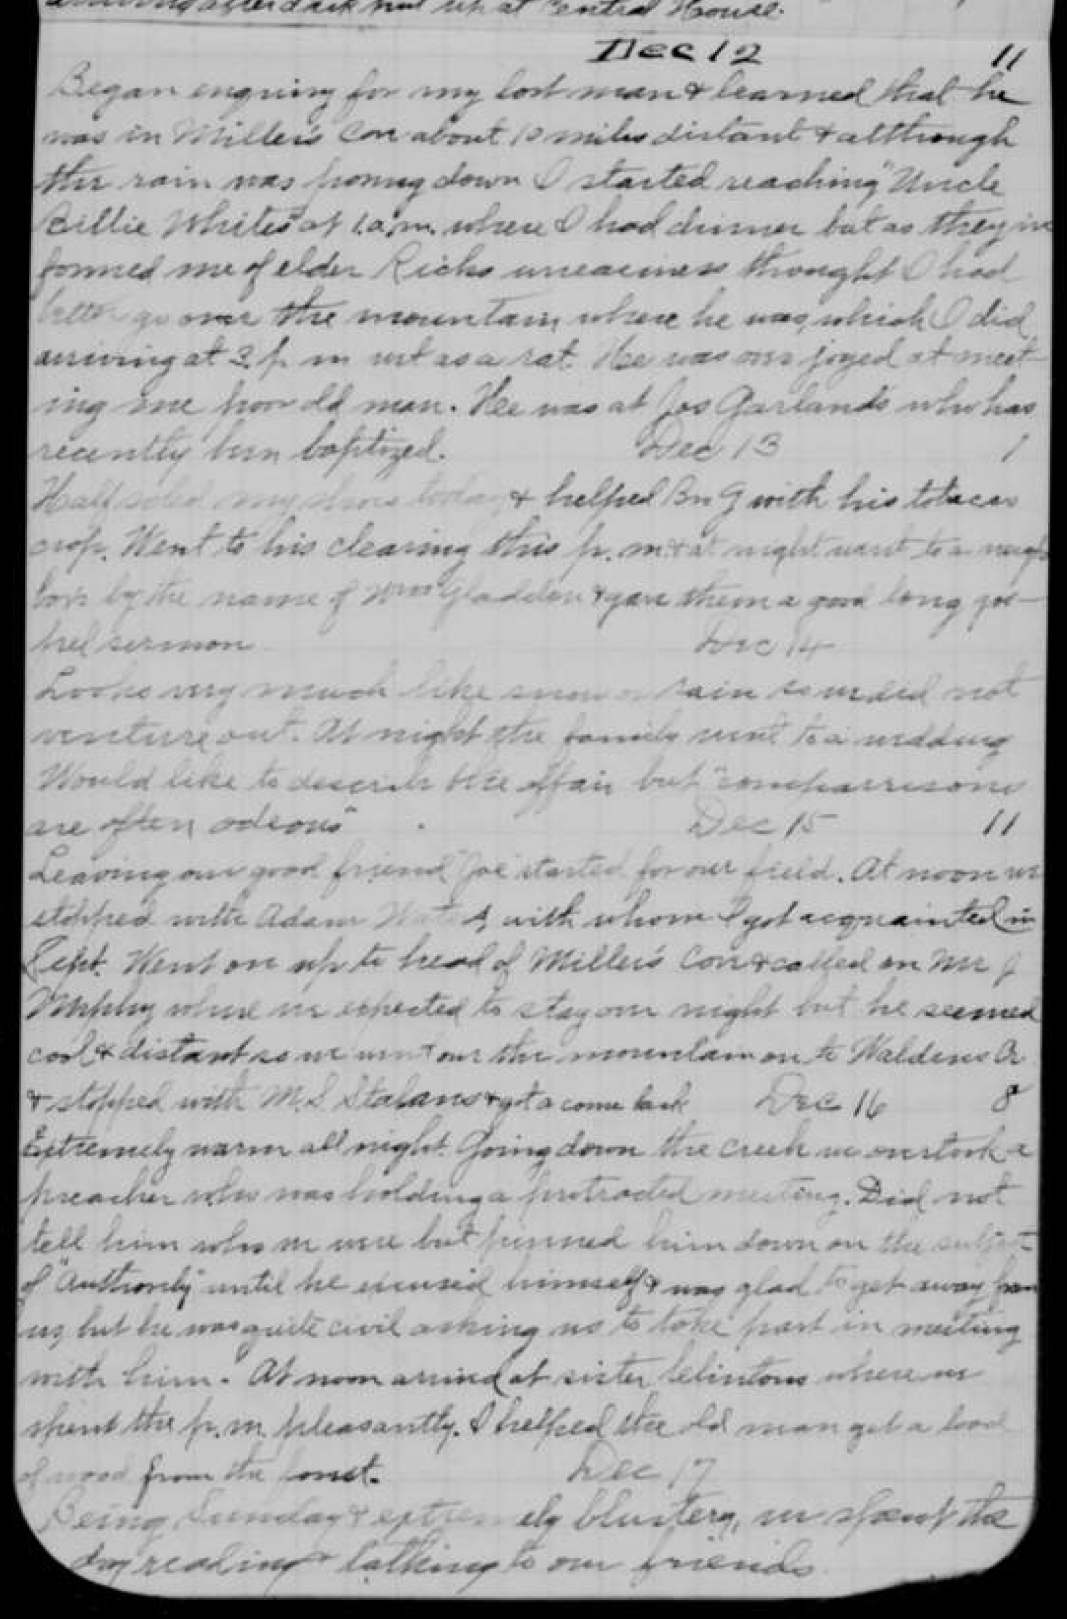 arriving after dark put up at Central House.
Dec 12 11
Began enquiry for my lost man & learned that he
was in Miller's Cov about 10 miles distant & although
the rain was poring down I started reaching "Uncle
Billie Whites" at 1 p.m. where I had dinner but as they in
formed me of elder Richs uneasiness thought I had
better go over the mountain where he was, which I did
arriving at 3 p m wet as a rat. He was over joyed at meet-
ing me poor old man. He was at Jos Garlands who has
recently been baptized. Dec 13 1
Half soled my shoes today & helped Bro G with his tobacco
crop. Went to his clearing this p. m. & at night went to a neigh
bors by the name of Wm Gladden & gave them a good long gos-
pel sermon Dec 14
Looks very much like snow or rain so we did not
venture out. At night the family went to a wedding
Would like to describe the affair but "comparrisons
are often odeous" Dec 15 11
Leaving our good friend "Joe" started for our field. At noon we
stopped with Adam with whom I got acquainted in
Sept. Went on up to head of Miller's Cov & called on Mr J
Murphy where we expected to stay over night but he seemed
cool & distant so we went over the mountain on to Waldens Cr
& stopped with M. S. & got a come back Dec 16 8
Extremely warm all night. Going down the creek we overtook a
preacher who was holding a protracted meeting. Did not
tell him who we were but pinned him down on the subject-
of "Authority" until he excused himself & was glad to get away from
us, but he was quite civil asking us to take part in meeting
with him. At noon arrived at sister Clintons where we
spent the p. m. pleasantly. I helped the old man get a load
of wood from the forest. Dec 17
Being Sunday & extremely blustery, we spent the
day reading & talking to our friends